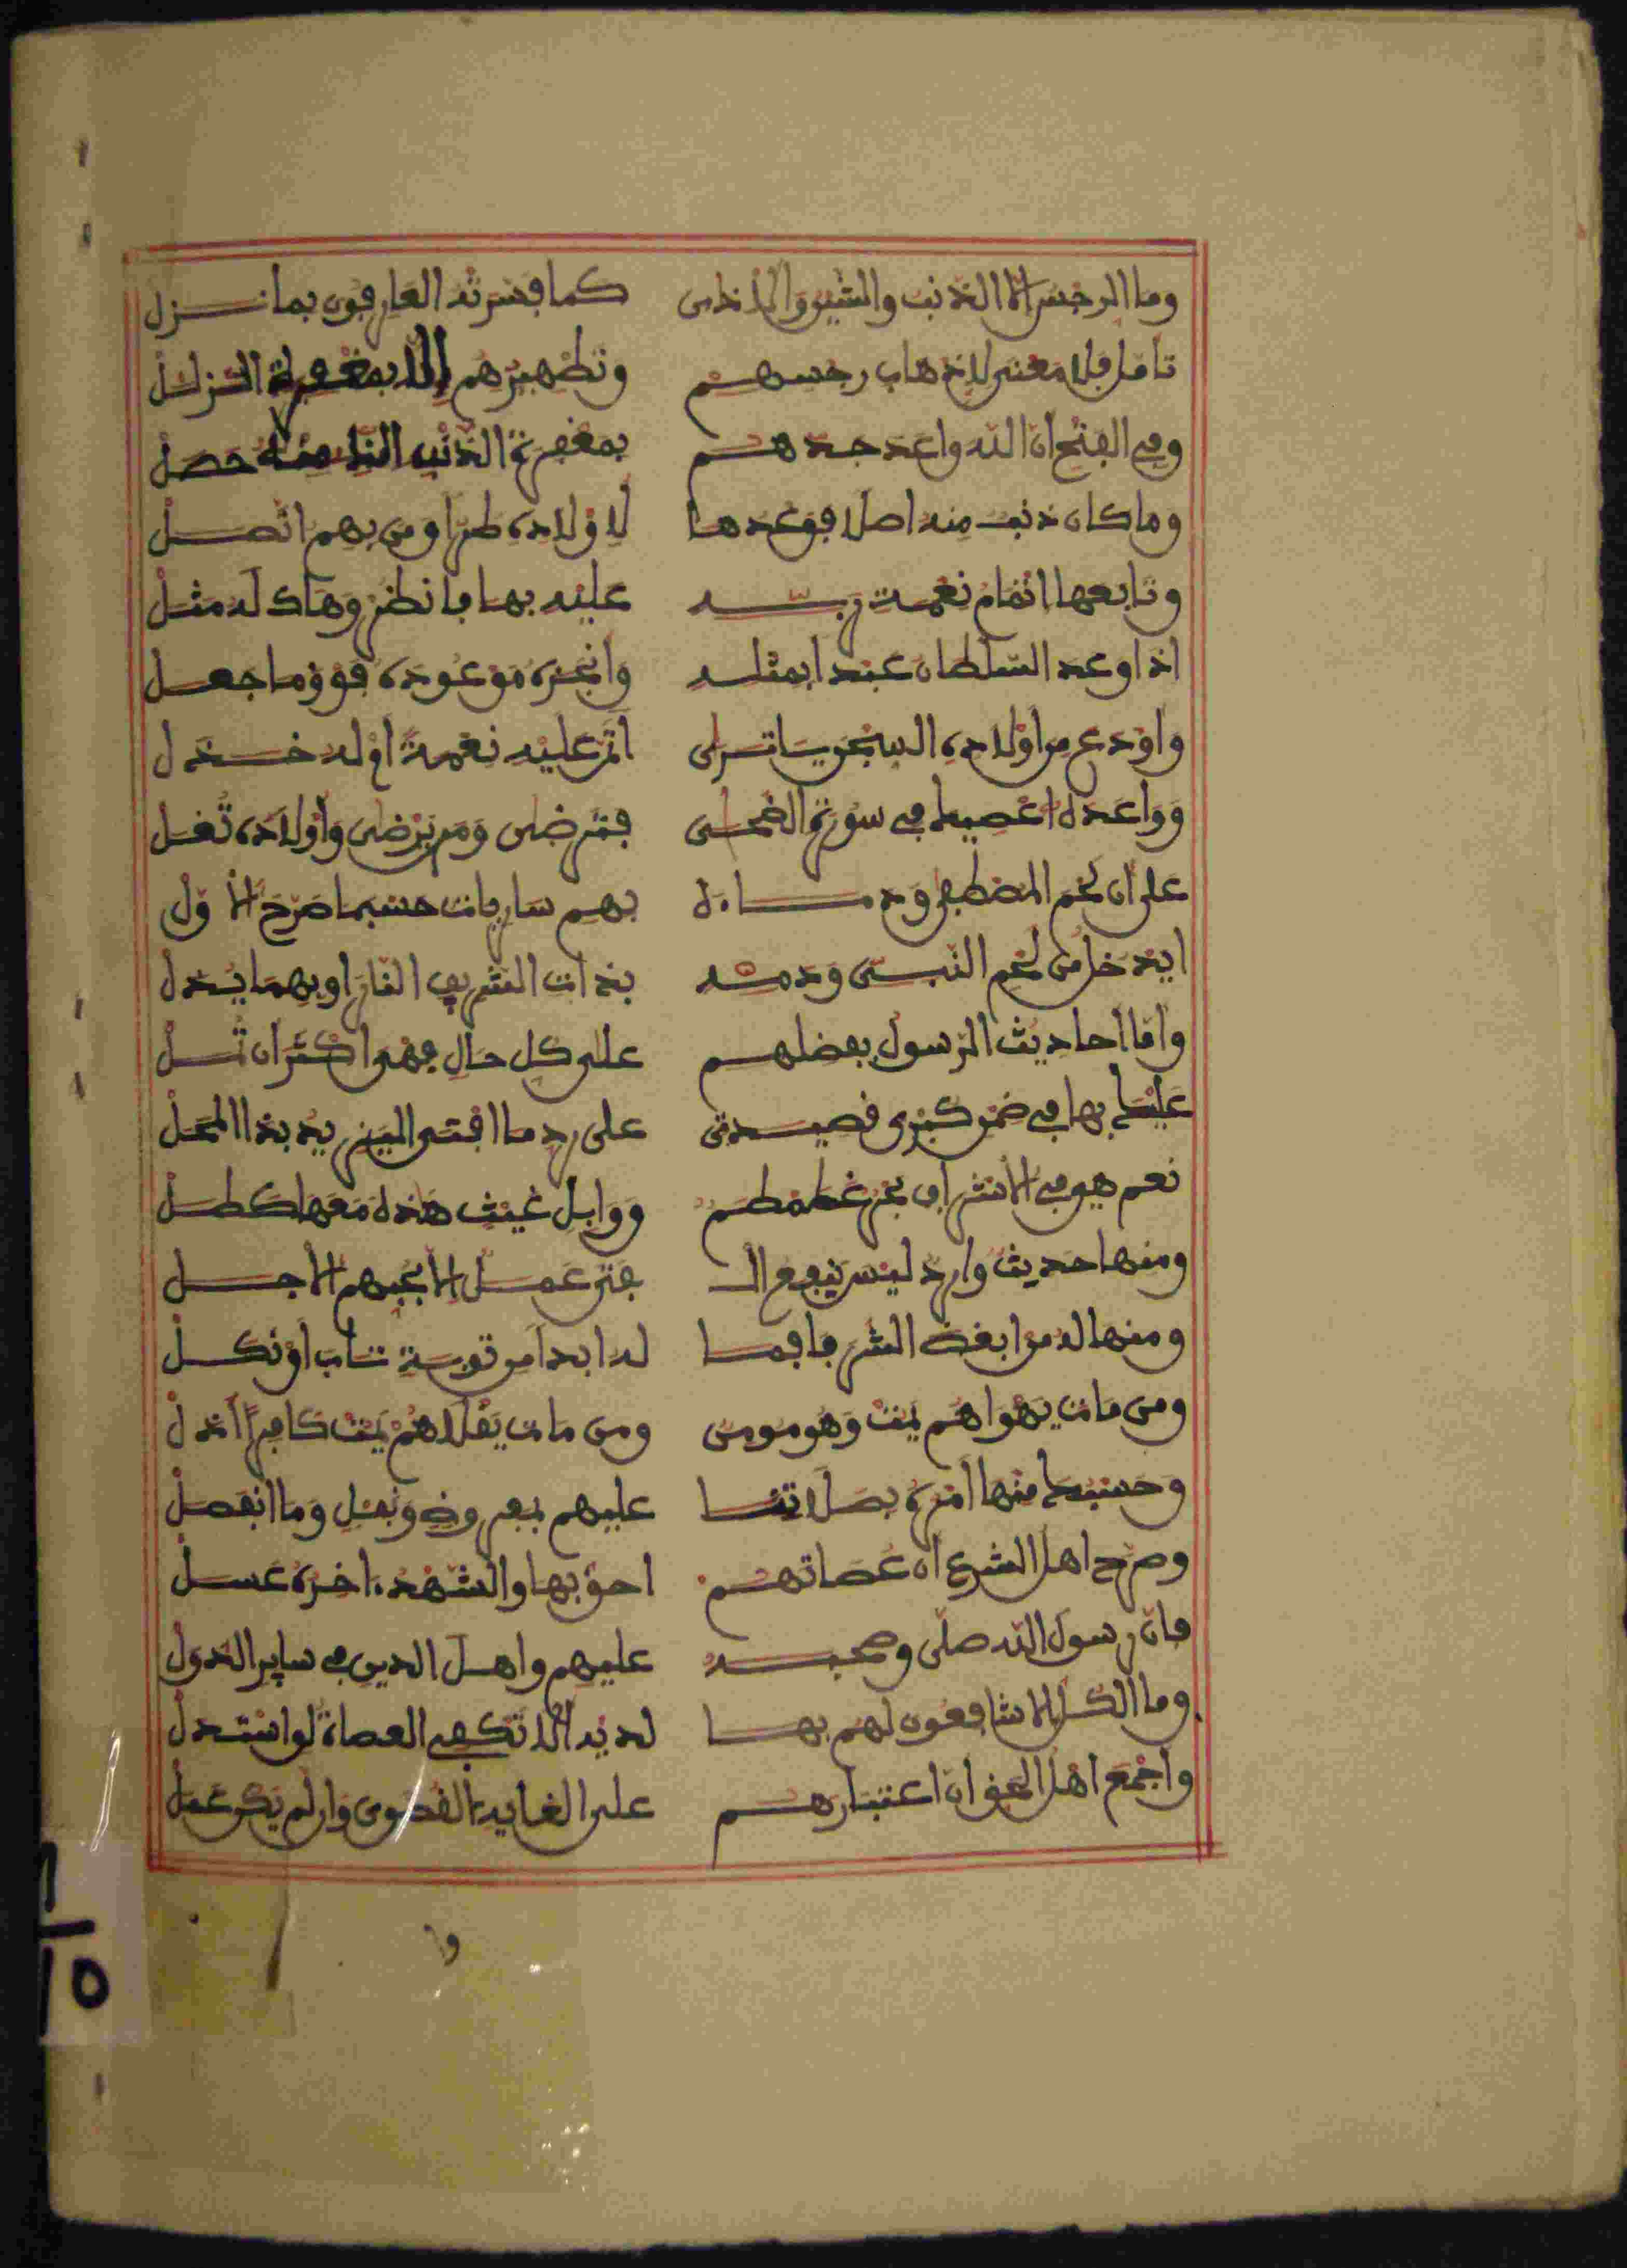 وما الرجس إلا الذنب والشين والأذى كما فسرته العارفون بما نزل
تأمل فلا معنى لإذهاب رجسهم وتطهيرهم إلا بمغفرة الزلل
وفي الفتح أن الله واعد جدهم بمغفرة الذنب الذي منه حصل
وما كان ذنب منه أصلا فوعدها لأولاده طرا ومن بهم اتصل
وتابعها اتمام نعمة ربه عليه بها فانظر وهاك له مثل
اذا وعد السلطان عبدا بمثله وانجزه موعوده فوق ما جعل
واودع من اولاده السجن يا ترى اتم عليه نعمة او له خذل
وواعده اعطيك في سورة الضحى فترضى ومن يرضى واولاده تغل
على ان لحم المصطفى ودماءه بهم ساريات حسبما صرح الأول
ايدخل من لحم النبي ودمه بذات الشريف النار او بهما يذل
واما احاديث الرسول بفضلهم على كل حال فهي اكثر ان تسل
عليك بها في ضمن كبرى قصيدتي على رد ما افتى اليزيد بذا المحل
نعم هو في الاشراف بحر غطمطم ووابل غيث هذه معها كطل
ومنها حديث وارد ليس ينفع الـ ـفتى عمل الا بحبهم الأجل
ومنها الذ من ابغض الشرفا فما له ابدا من توبة تاب او نكل
ومن مات يهواهم يمت وهو مومن ومن مات يقلاهم يمت كافرا اذل
وحسبك منها امره بصلاتنا عليهم بفروض ونفل وما انفصل
وصرح اهل الشرع ان عصاتهم احق بها والشهد اخره عسل
فان رسول الله صلى وصحبه عليهم واهل الدين في ساير الدول
وما الكل الا شافعون لهم بها لديه ألا تكفي العصاة لو استدل
واجمع اهل الحق ان اعتبارهم على الغاية القصوى وان لم يكن عمل
وا